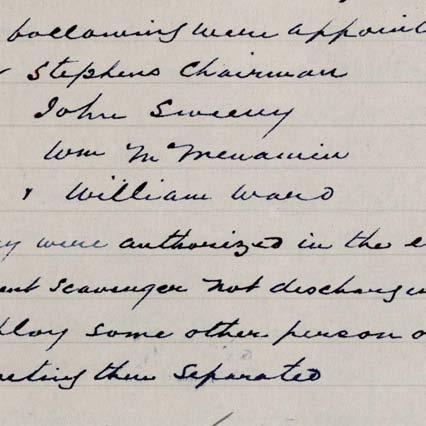 following were appoint
Stephens Chairman
John Sweeny
Wm McMenamin
& William Ward
ey were authorized in the e
ent Scavenger not dischargin
ploy some other person o
eeting then Separated